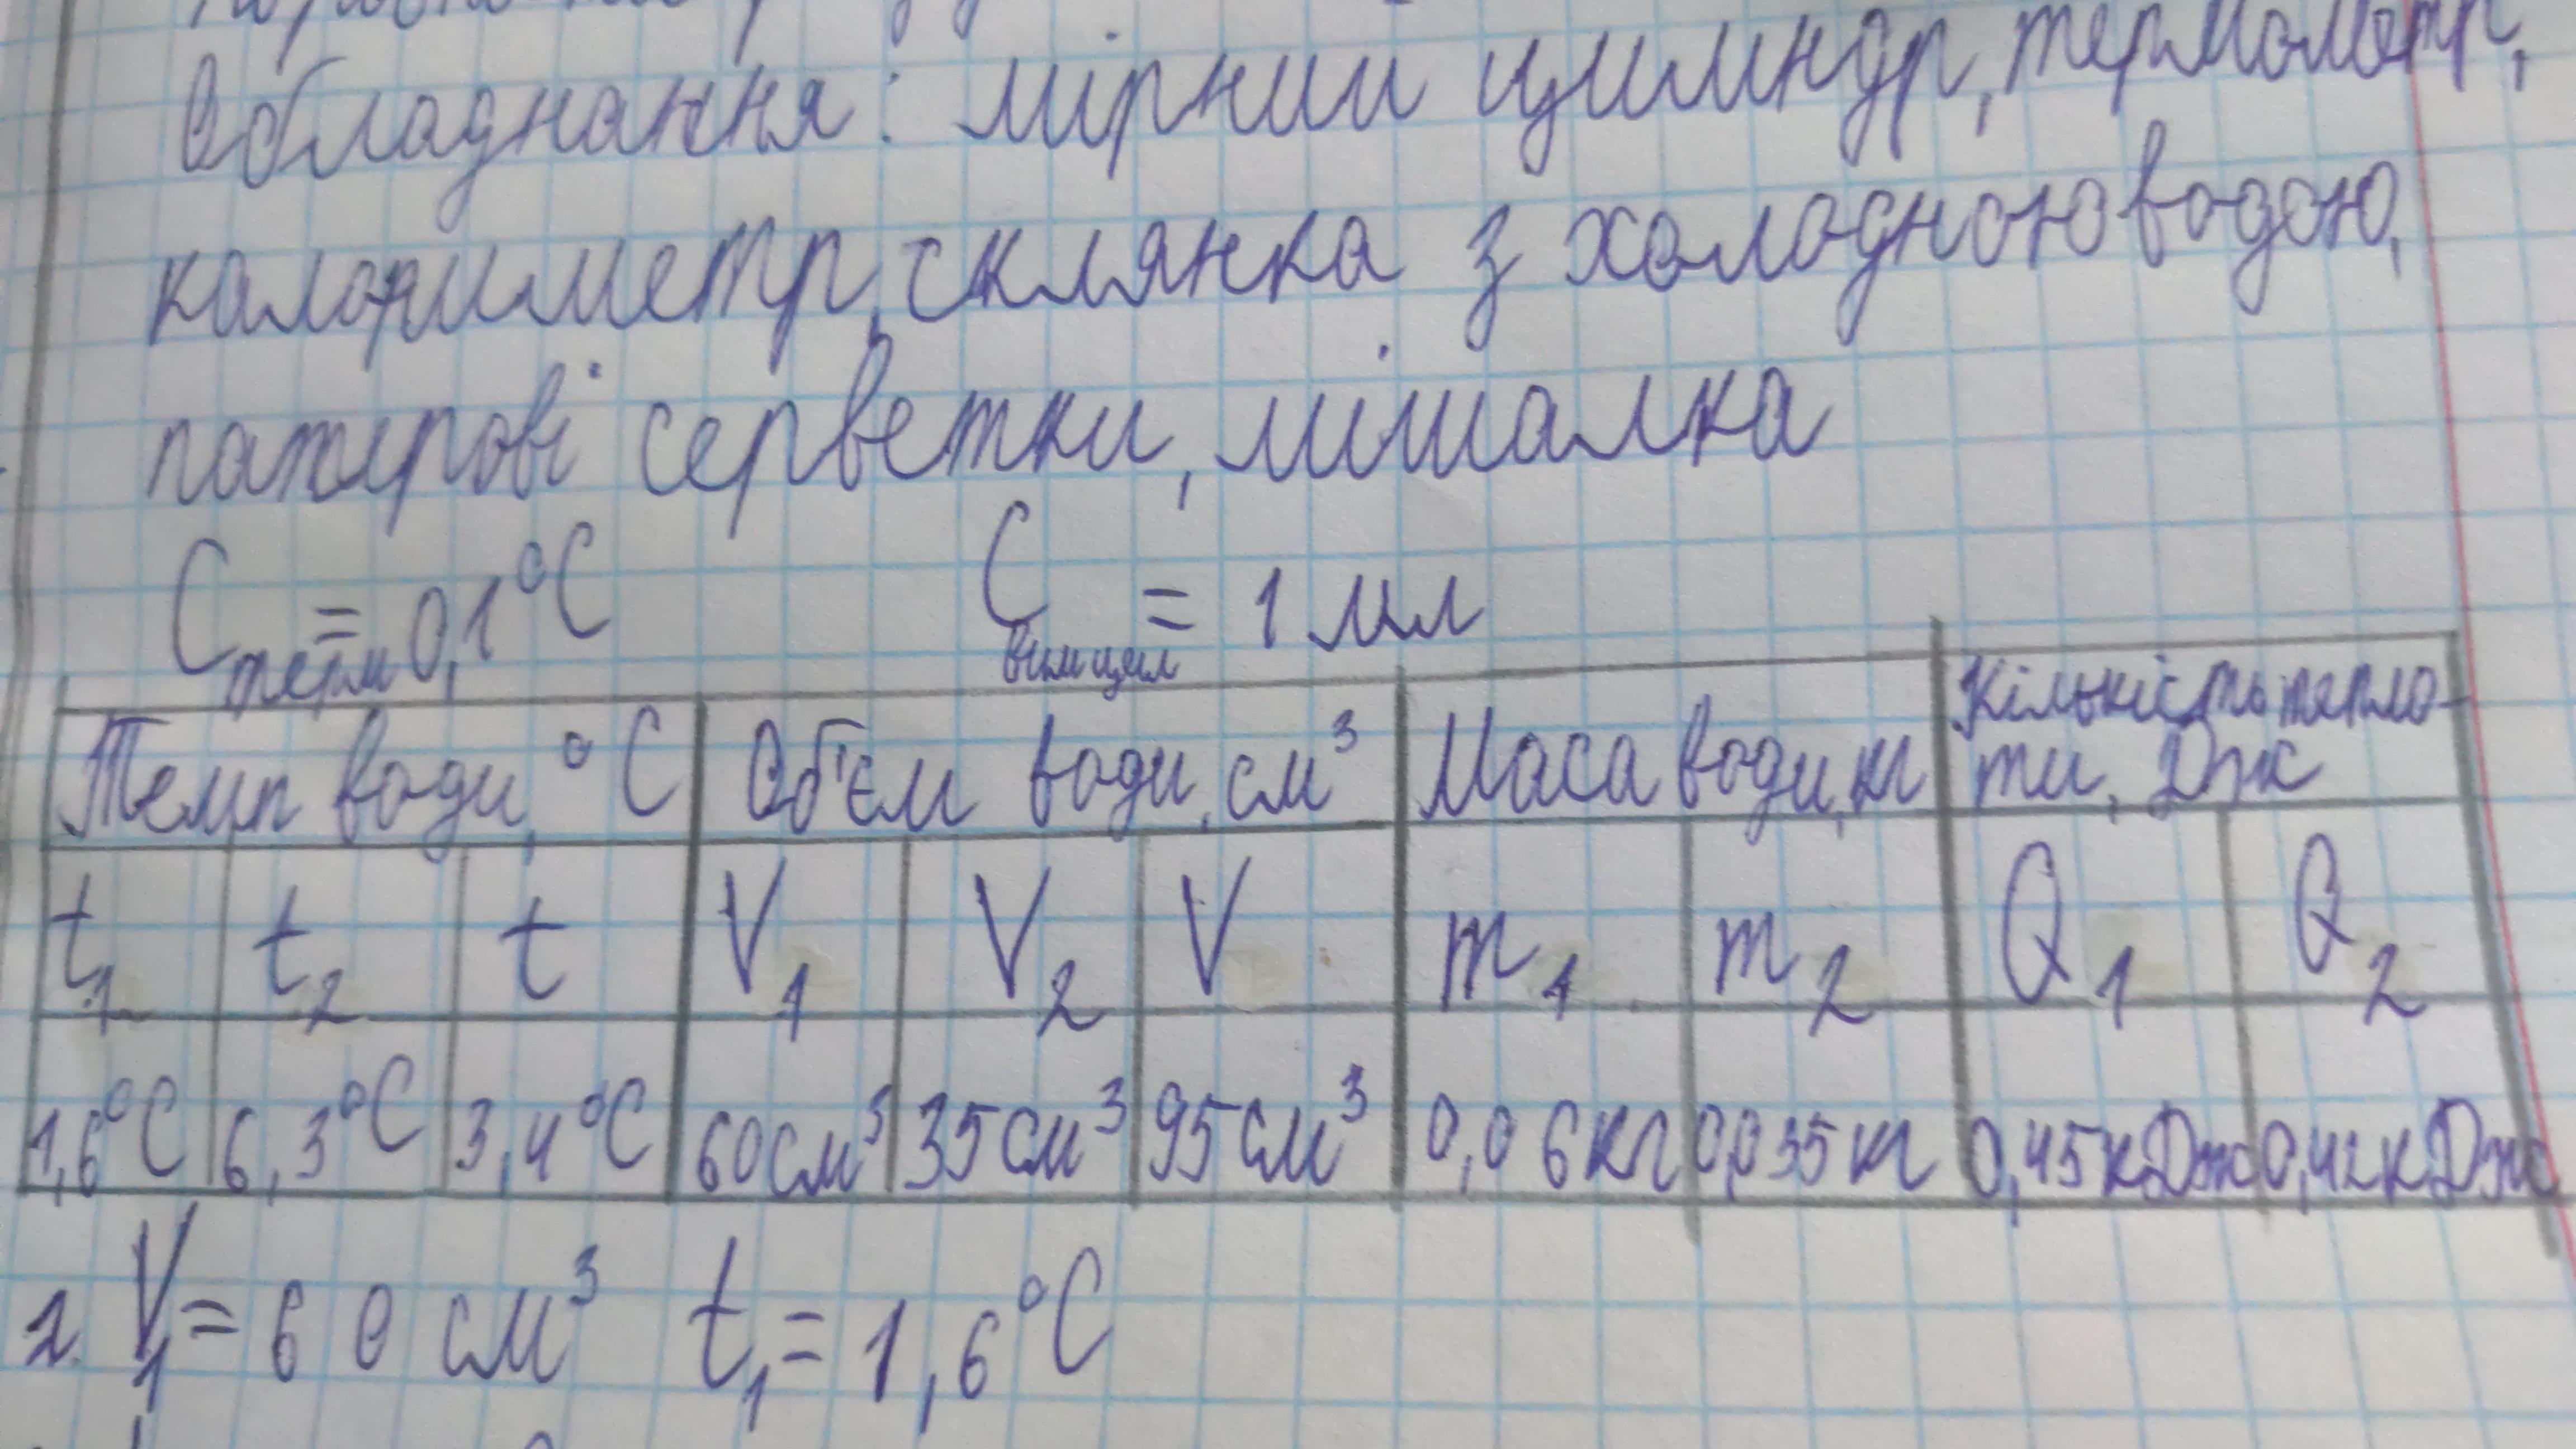 Обладнання: мірний циліндр, термометр,
калориметр, склянка з холодною водою,
паперові серветки, мішалка
C терм = 0,1°C C вим цил = 1 мл
Темп води, °C Об'єм води, см³ Маса води, кг Кількість тепло-
ти, Дж
t₁ t₂ t V₁ V₂ V m₁ m₂ Q₁ Q₂
1,6°C 6,3°C 3,4°C 60см³ 35см³ 95см³ 0,06кг 0,035кг 0,45кДж 0,42кДж
2. V₁ = 60 см³ t₁ = 1,6°C